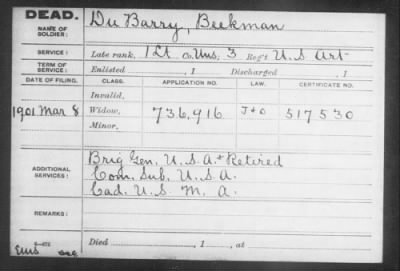 DEAD.
NAME OF SOLDIER: Du Barry, Beekman
SERVICE: Late rank, 1 Lt Co. Uns; 3 Reg't U.S. Art
TERM OF SERVICE: Enlisted , 1 Discharged , 1
DATE OF FILING. CLASS. APPLICATION NO. LAW. CERTIFICATE NO.
Invalid,
1901 Mar 8 Widow, 736,916 J+O 517530
Minor,
ADDITIONAL SERVICES: Brig Gen. U.S.A. Retired
Com. Sub. U.S.A.
Cad. U.S. M. A.
REMARKS:
Died , 1 , at